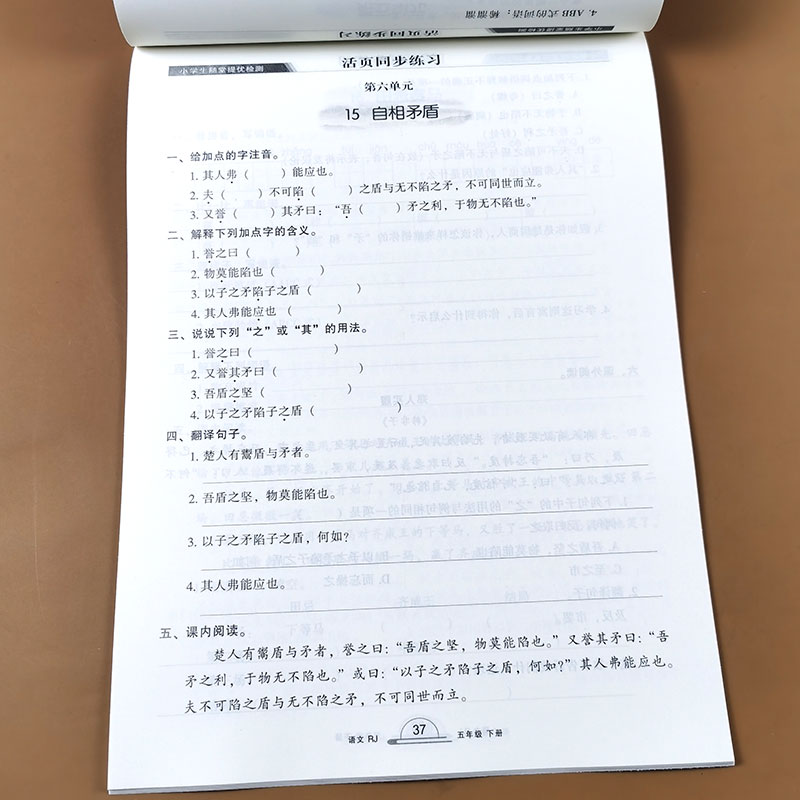 4. ABB 式的词语：稀溜溜
活页同步练习
小学生随堂提优检测
活页同步练习
第六单元
15 自相矛盾
一、给加点的字注音。
1. 其人弗（ ）能应也。
2. 夫（ ）不可陷（ ）之盾与无不陷之矛，不可同世而立。
3. 又誉（ ）其矛曰：“吾（ ）矛之利，于物无不陷也。”
二、解释下列加点字的含义。
1. 誉之曰（ ）
2. 物莫能陷也（ ）
3. 以子之矛陷子之盾（ ）
4. 其人弗能应也（ ）
三、说说下列“之”或“其”的用法。
1. 誉之曰（ ）
2. 又誉其矛曰（ ）
3. 吾盾之坚（ ）
4. 以子之矛陷子之盾（ ）
四、翻译句子。
1. 楚人有鬻盾与矛者。
2. 吾盾之坚，物莫能陷也。
3. 以子之矛陷子之盾，何如？
4. 其人弗能应也。
五、课内阅读。
楚人有鬻盾与矛者，誉之曰：“吾盾之坚，物莫能陷也。”又誉其矛曰：“吾
矛之利，于物无不陷也。”或曰：“以子之矛陷子之盾，何如？”其人弗能应也。
夫不可陷之盾与无不陷之矛，不可同世而立。
语文 RJ 37 五年级 下册